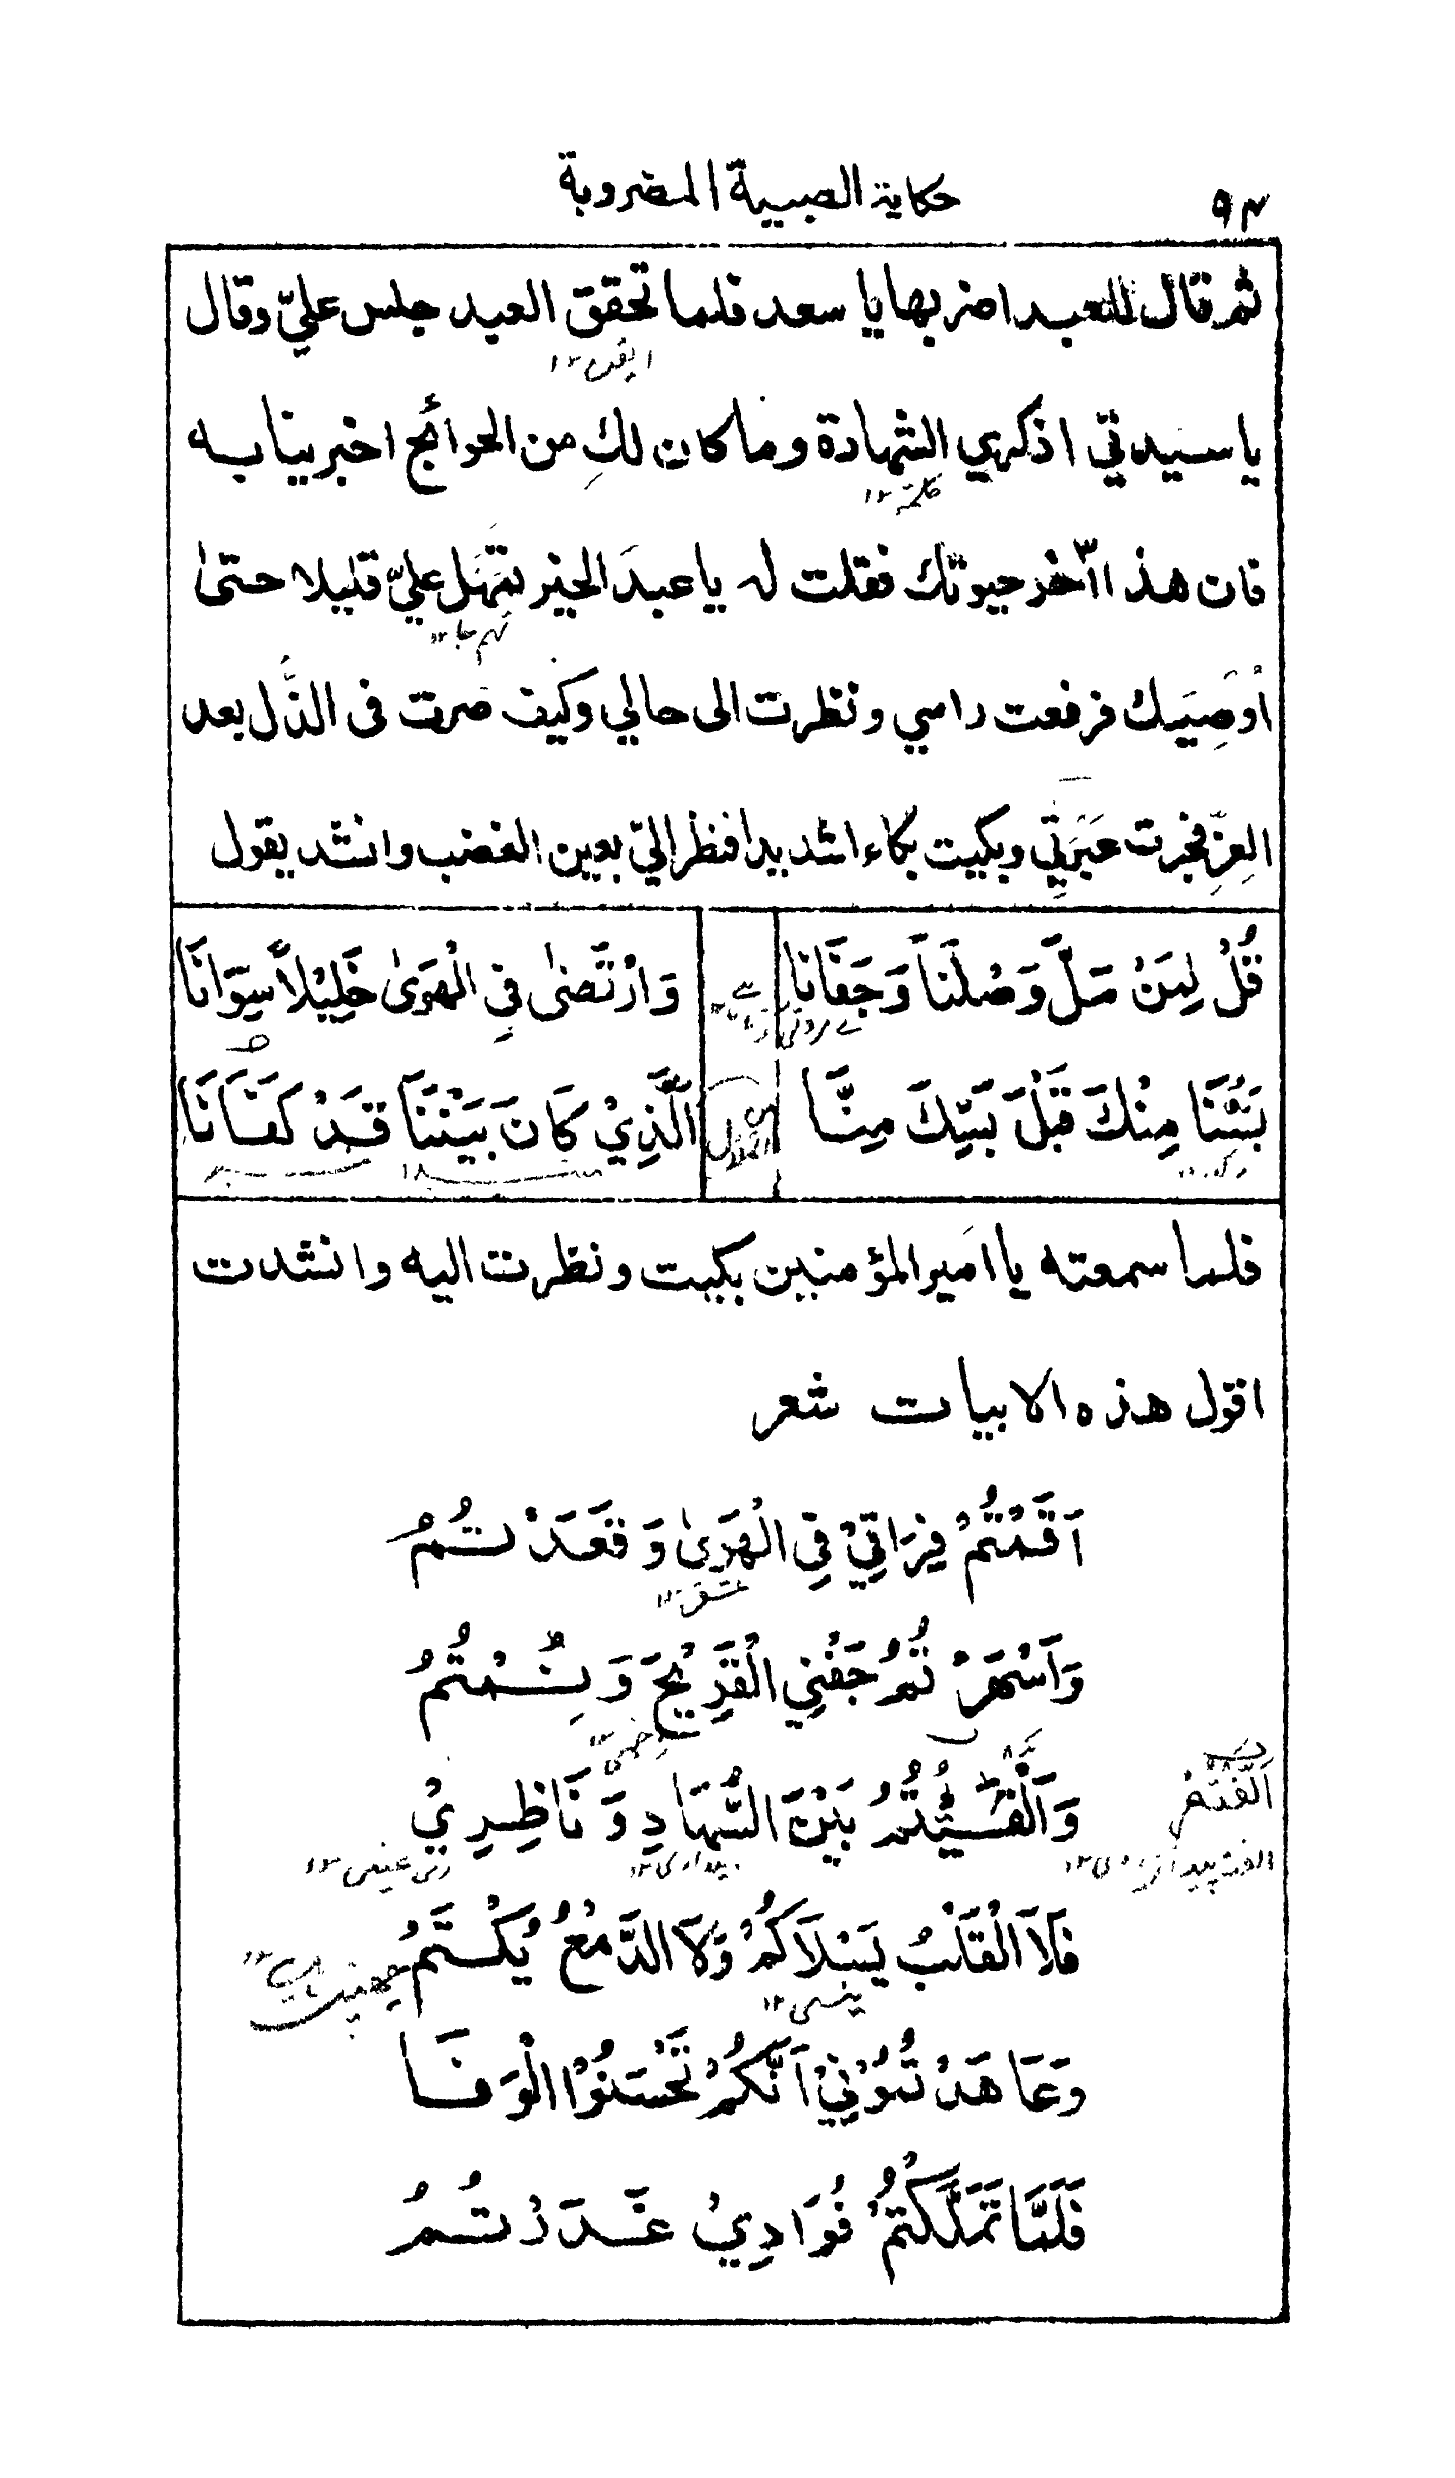 ٩٤
حكاية الصبية المضروبة
ثم قال للعبد اضربها يا سعد فلما تحقق العبد جلس عليّ وقال
ايقن ١٢
يا سيدتي اذكري الشهادة وما كان لكِ من الحوائج اخبرينا به
كلمة ١٢
فان هذا آخر حيوتك فقلت له يا عبدَ الخير تمَهَّل عليّ قليلا حتىٰ
اُوصِيَك فرفعت راسي ونظرت الى حالي وكيف صرت فى الذُّل بعد
العِزِّ فجرت عَبْرَتِي وبكيت بكاء اشديدا فنظر اليّ بعين الغضب وانشد يقول
قُلْ لِمَنْ مَلَّ وَصْلَنَا وَجَفَانَا وَارْتَضىٰ فِي الْهَوىٰ خَلِيْلاً سِوَانَا
بَتُّنَا مِنْكَ قَبْلَ بَيِّكَ مِنَّا اَلَّذِيْ كَانَ بَيْنَنَا قَدْ كَفَانَا
فلما سمعته يا امير المؤمنين بكيت ونظرت اليه وانشدت
اقول هذه الابيات شعر
اَقَمْتُمْ فِرَاقِيْ فِي الْهَوىٰ وَقَعَدْ تُمُ
عشق ١٢
وَاَسْهَرْ تُمُ جَفْنِي الْقَرِيْحَ وَنِمْتُمُ
زخمى
وَاَلْقَيْتُمُ بَيْنَ السُّهَادِ وَنَاظِرِيْ
اَلَّفْتُمْ
بيدارى ١٢
عينى ١٢
فَلاَ الْقَلْبُ يَسْلاَكُمُ وَلاَ الدَّمْعُ يُكْتَمُ
ينسى ١٢
وَعَاهَدْ تُمُوْنِيْ اَنَّكُمْ تَحْسَنُوْا الْوَفَا
فَلَمَّا تَمَلَّكْتُمْ فُوَادِيْ غَدَرْتُمُ